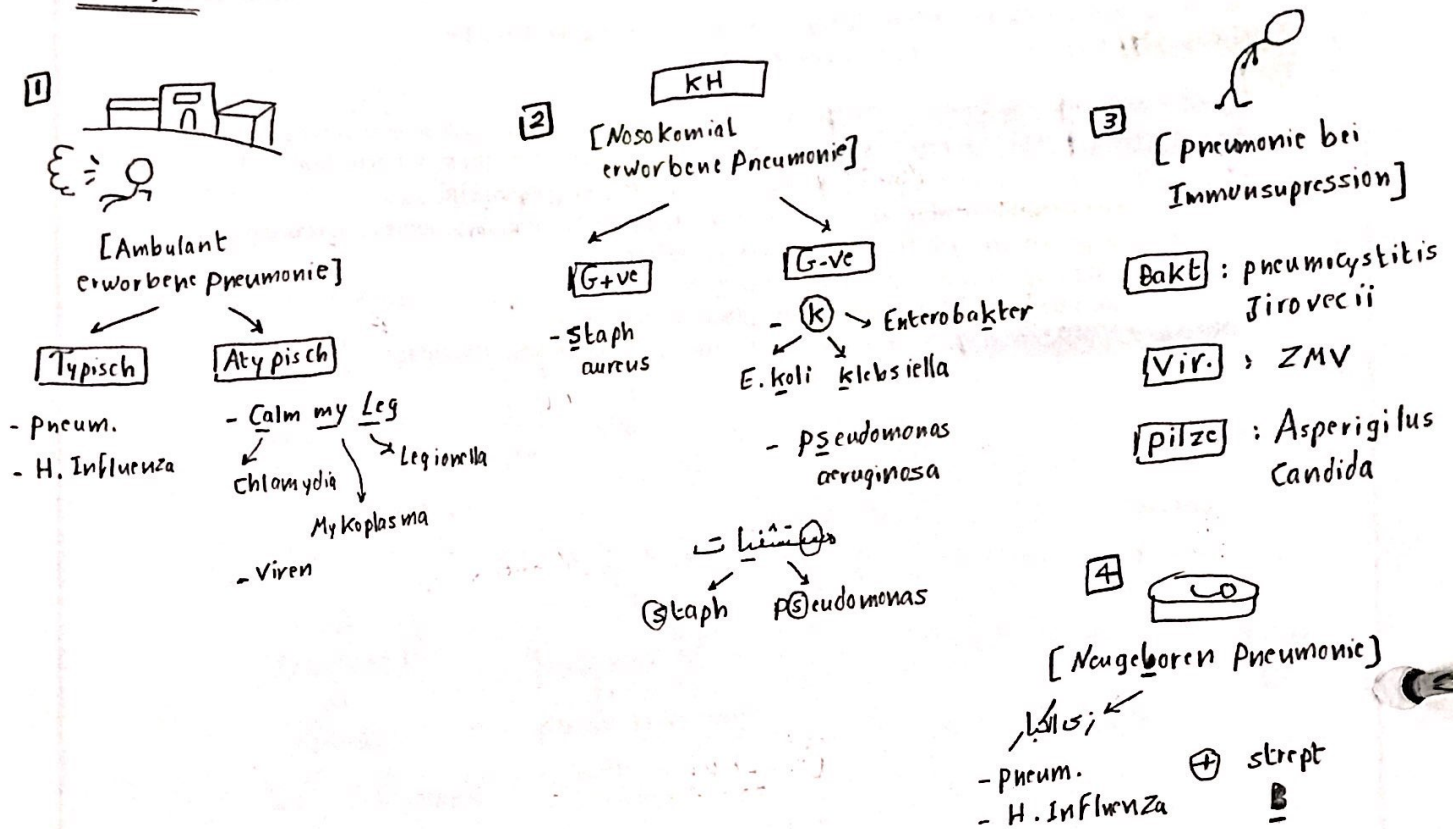 1
[Ambulant
erworbene Pneumonie]
Typisch
- Pneum.
- H. Influenza
Atypisch
- Calm my Leg
Chlamydia
Mykoplasma
Legionella
- Viren
KH
2
[Nosokomial
erworbene Pneumonie]
G+ve
- Staph
aureus
G-ve
- K → Enterobakter
E. koli klebsiella
- Pseudomonas
aeruginosa
مستشفيات
Staph Pseudomonas
3
[Pneumonie bei
Immunsupression]
Bakt : pneumicystitis
Jirovecii
Vir. : ZMV
Pilze : Asperigilus
Candida
4
[Neugeboren Pneumonie]
زى الكبار
- Pneum.
- H. Influenza
+ strept
B